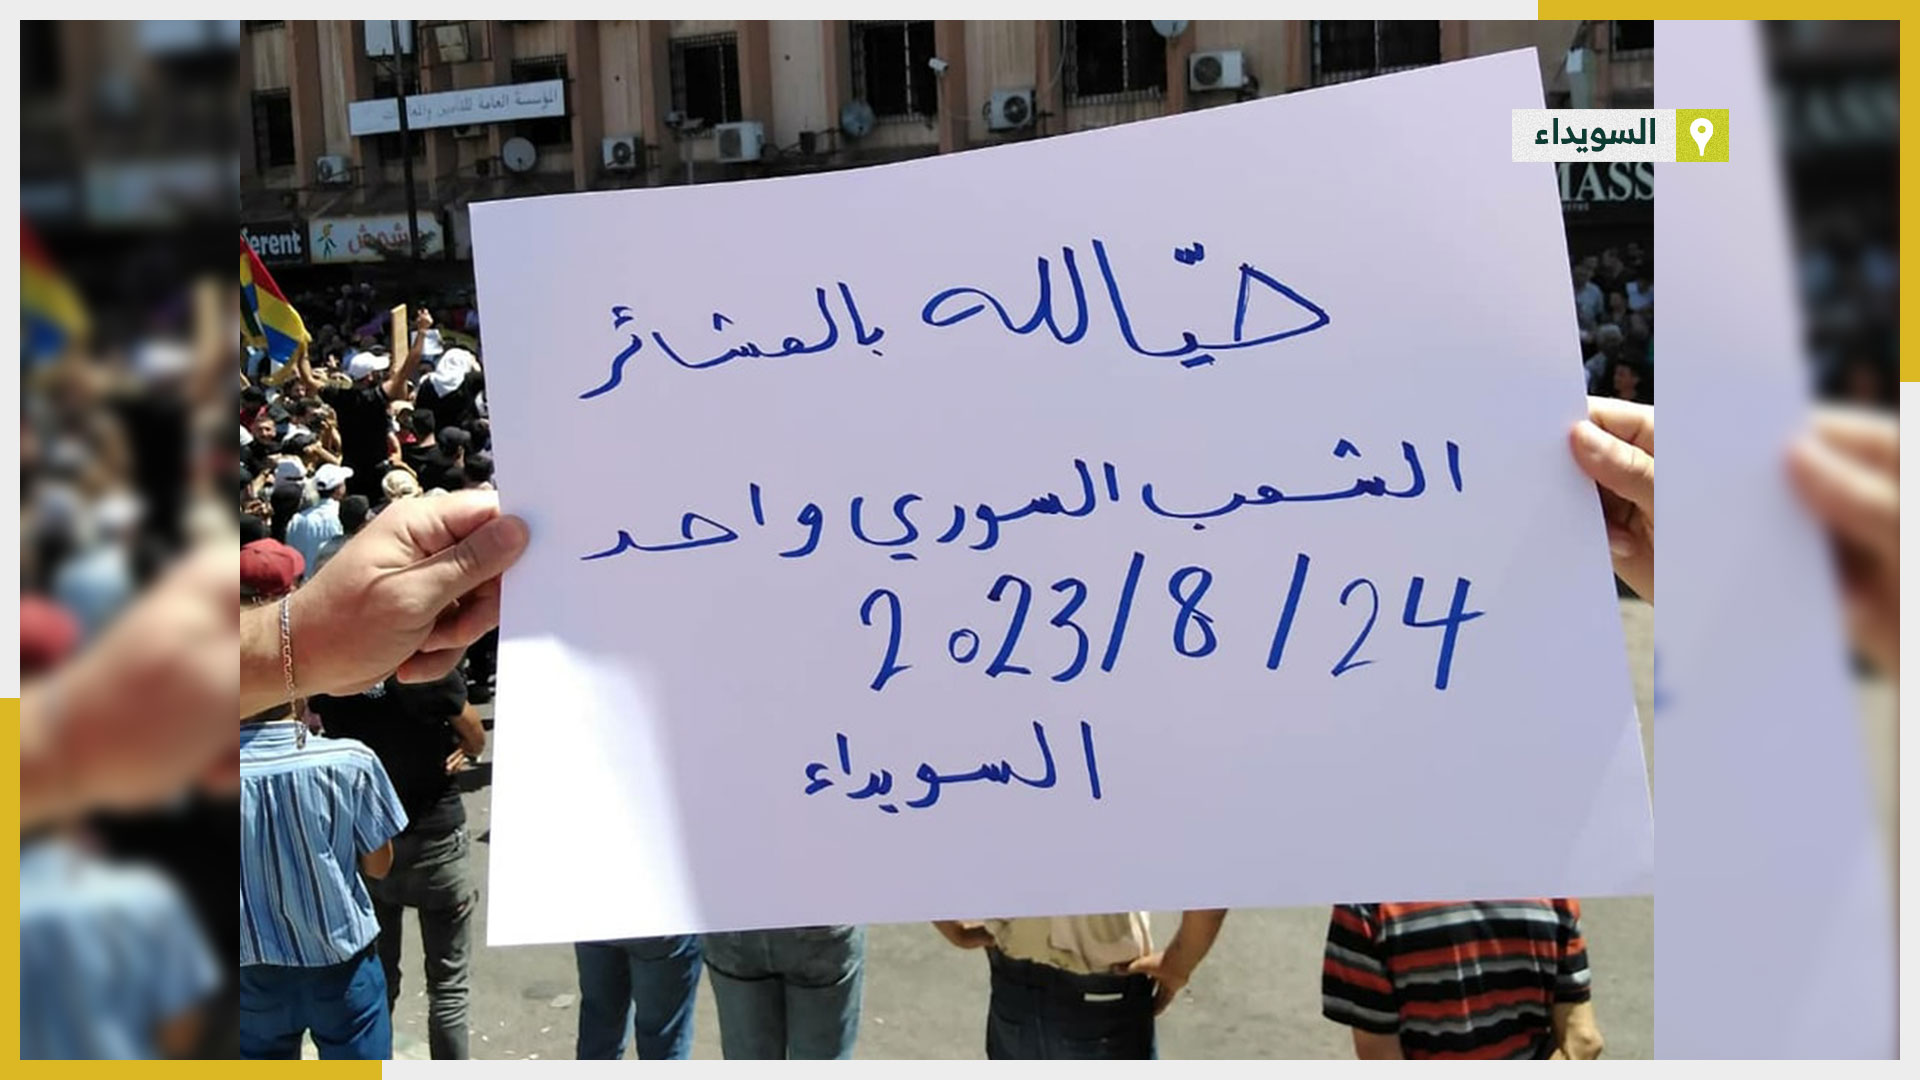 المؤسسة العامة للتأمين والمعاشات
السويداء
MASS
ferent
مشمش
حيّالله بالعشائر
الشعب السوري واحد
2023/8/24
السويداء